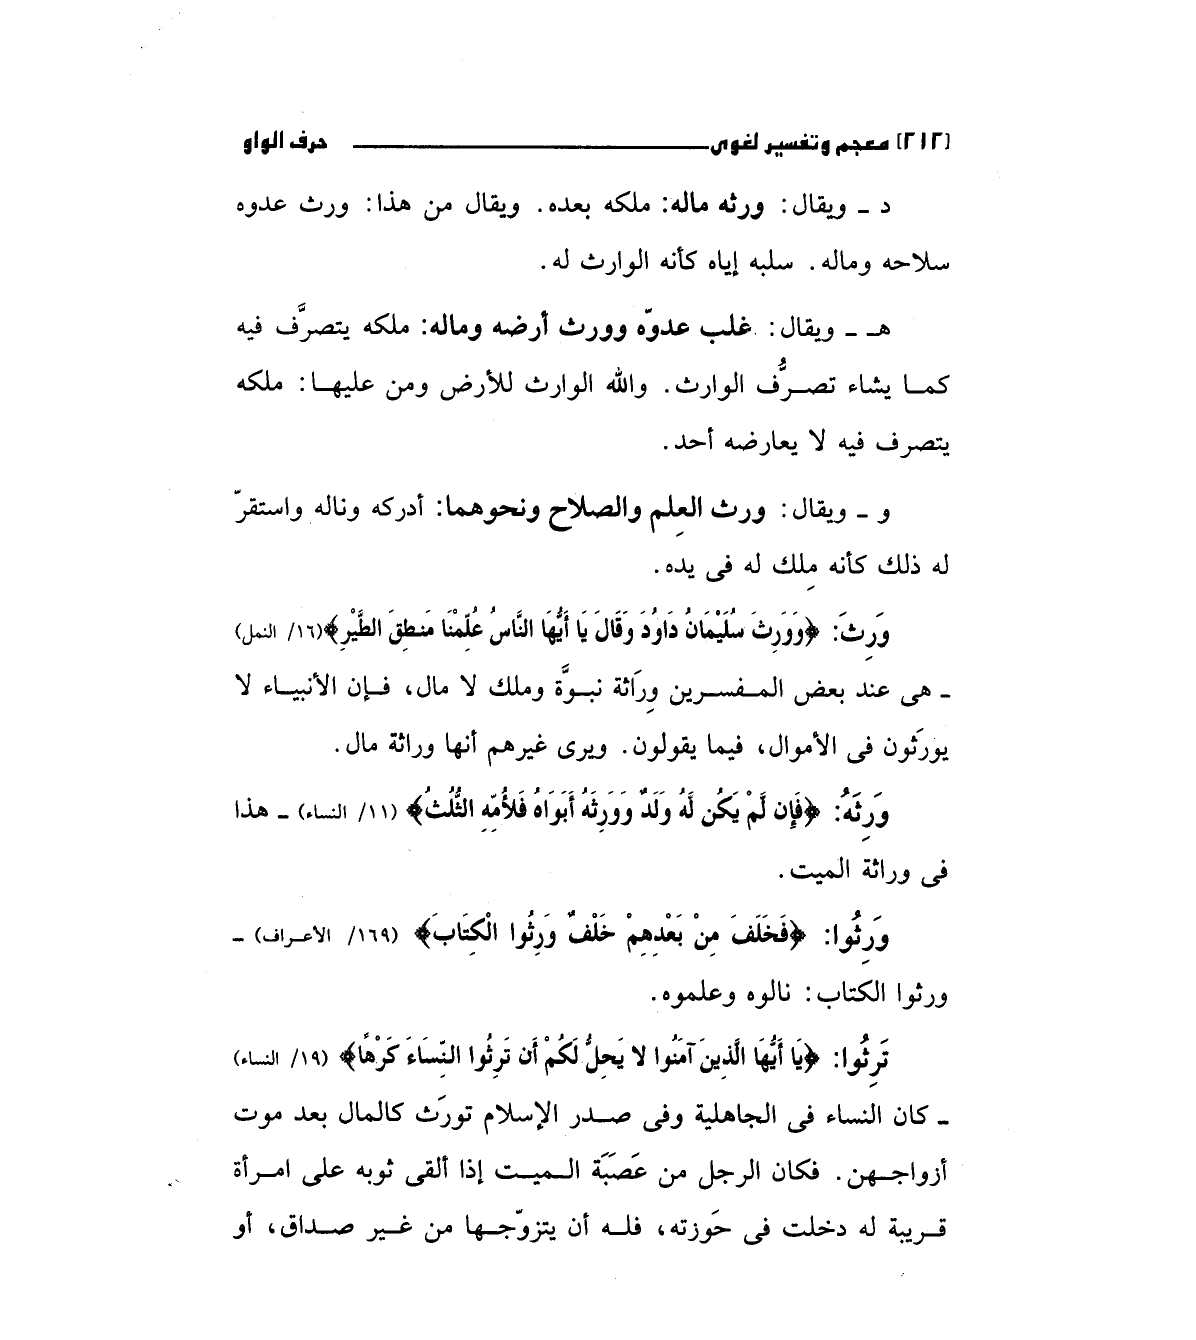 [٢١٢] معجم وتفسير لغوى ــــــــــــ حرف الواو
د ـ ويقال: ورثه ماله: ملكه بعده. ويقال من هذا: ورث عدوه
سلاحه وماله. سلبه إياه كأنه الوارث له.
هـ ـ ويقال: غلب عدوّه وورث أرضه وماله: ملكه يتصرَّف فيه
كما يشاء تصرُّف الوارث. والله الوارث للأرض ومن عليها: ملكه
يتصرف فيه لا يعارضه أحد.
و ـ ويقال: ورث العِلم والصلاح ونحوهما: أدركه وناله واستقرّ
له ذلك كأنه مِلك له فى يده.
وَرِثَ: ﴿وَوَرِثَ سُلَيْمَانُ دَاوُدَ وَقَالَ يَا أَيُّهَا النَّاسُ عُلِّمْنَا مَنطِقَ الطَّيْرِ﴾(١٦/ النمل)
ـ هى عند بعض المفسرين وِرَاثة نبوَّة وملك لا مال، فإن الأنبياء لا
يورَثون فى الأموال، فيما يقولون. ويرى غيرهم أنها وراثة مال.
وَرِثَهُ: ﴿فَإِن لَّمْ يَكُن لَّهُ وَلَدٌ وَوَرِثَهُ أَبَوَاهُ فَلأُمِّهِ الثُّلُثُ﴾ (١١/ النساء) ـ هذا
فى وراثة الميت.
وَرِثُوا: ﴿فَخَلَفَ مِنْ بَعْدِهِمْ خَلْفٌ وَرِثُوا الْكِتَابَ﴾ (١٦٩/ الأعراف) ـ
ورثوا الكتاب: نالوه وعلموه.
تَرِثُوا: ﴿يَا أَيُّهَا الَّذِينَ آمَنُوا لا يَحِلُّ لَكُمْ أَن تَرِثُوا النِّسَاءَ كَرْهًا﴾ (١٩/ النساء)
ـ كان النساء فى الجاهلية وفى صدر الإسلام تورَث كالمال بعد موت
أزواجهن. فكان الرجل من عَصَبَة الميت إذا ألقى ثوبه على امرأة
قريبة له دخلت فى حَوزته، فله أن يتزوّجها من غير صداق، أو